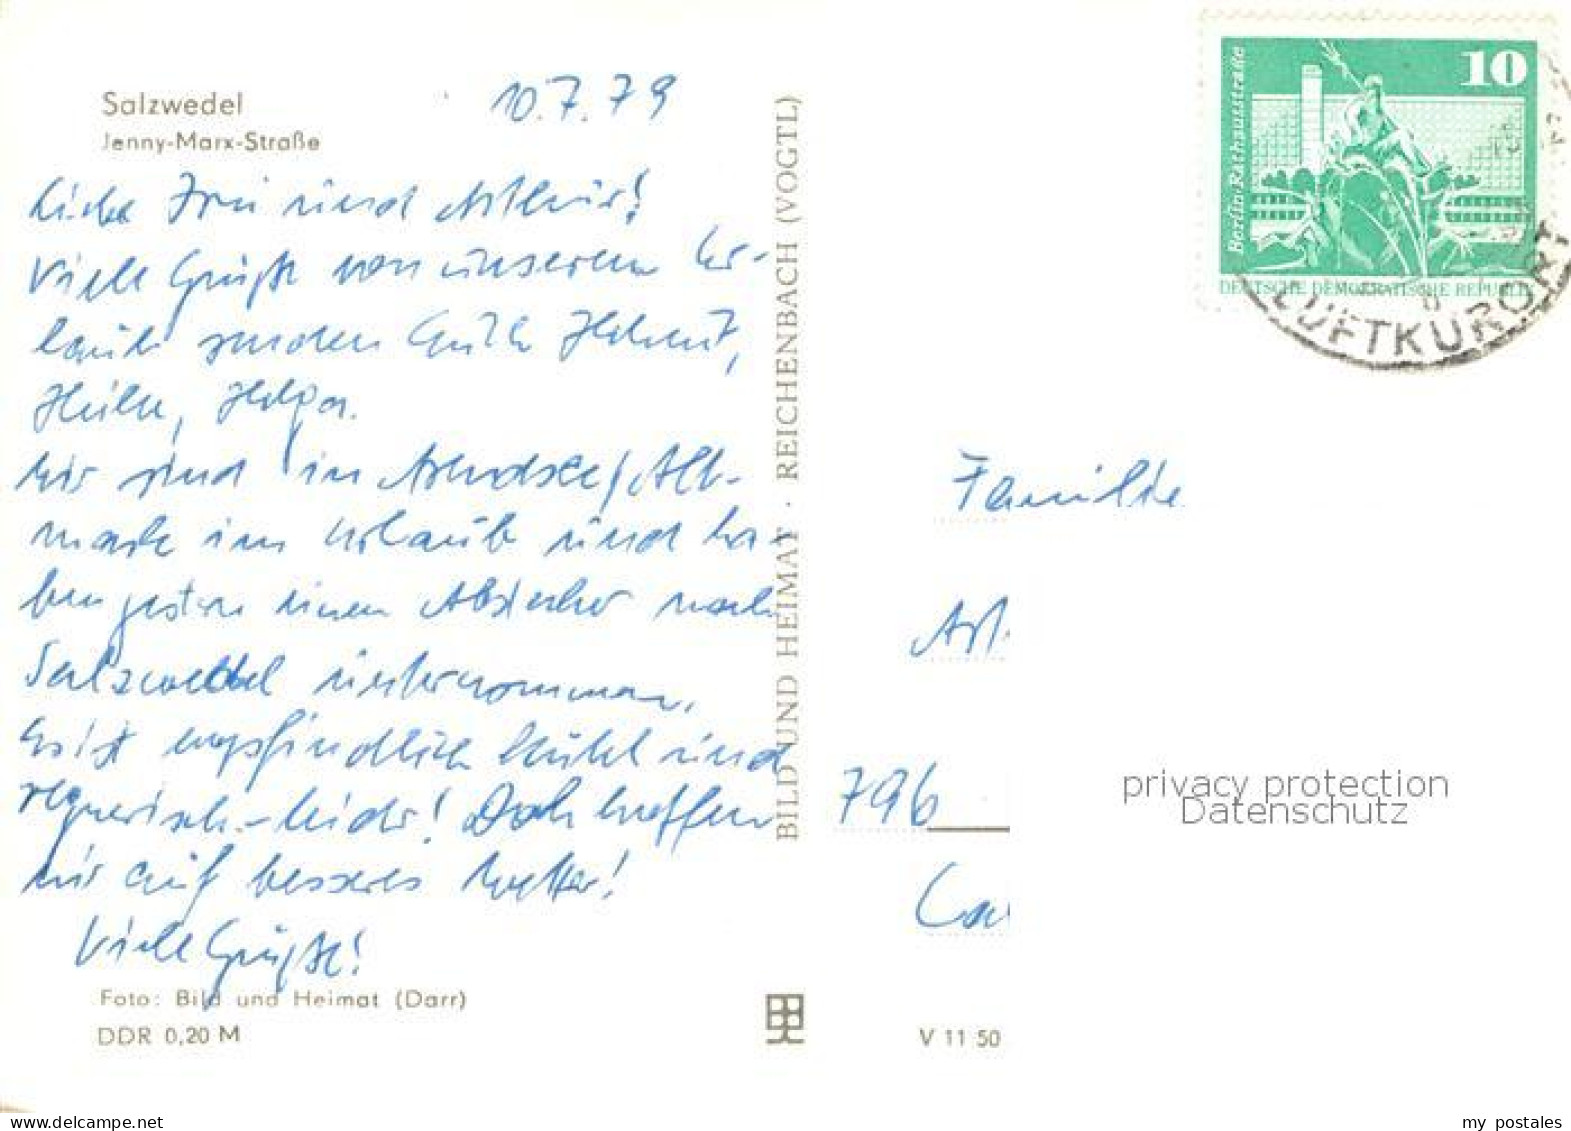 Salzwedel
Jenny-Marx-Straße
10.7.79
Liebe und
Viele Grüße von unserem Ur-
laub senden Euch Helmut,
Heike, Helga.
Wir sind in Arendsee/Alt-
mark im Urlaub und ha-
ben gestern einen Abstecher nach
Salzwedel unternommen.
Es ist empfindlich kühl und
regnerisch - leider! Doch hoffen
wir auf besseres Wetter!
Viele Grüße!
Foto: Bild und Heimat (Darr)
DDR 0,20 M
BILD UND HEIMAT · REICHENBACH (VOGTL)
V 11 50
Berlin-Rathausstraße
10
DEUTSCHE DEMOKRATISCHE REPUBLIK
LUFTKURORT
Familie
796
privacy protection
Datenschutz
www.delcampe.net
my_postales